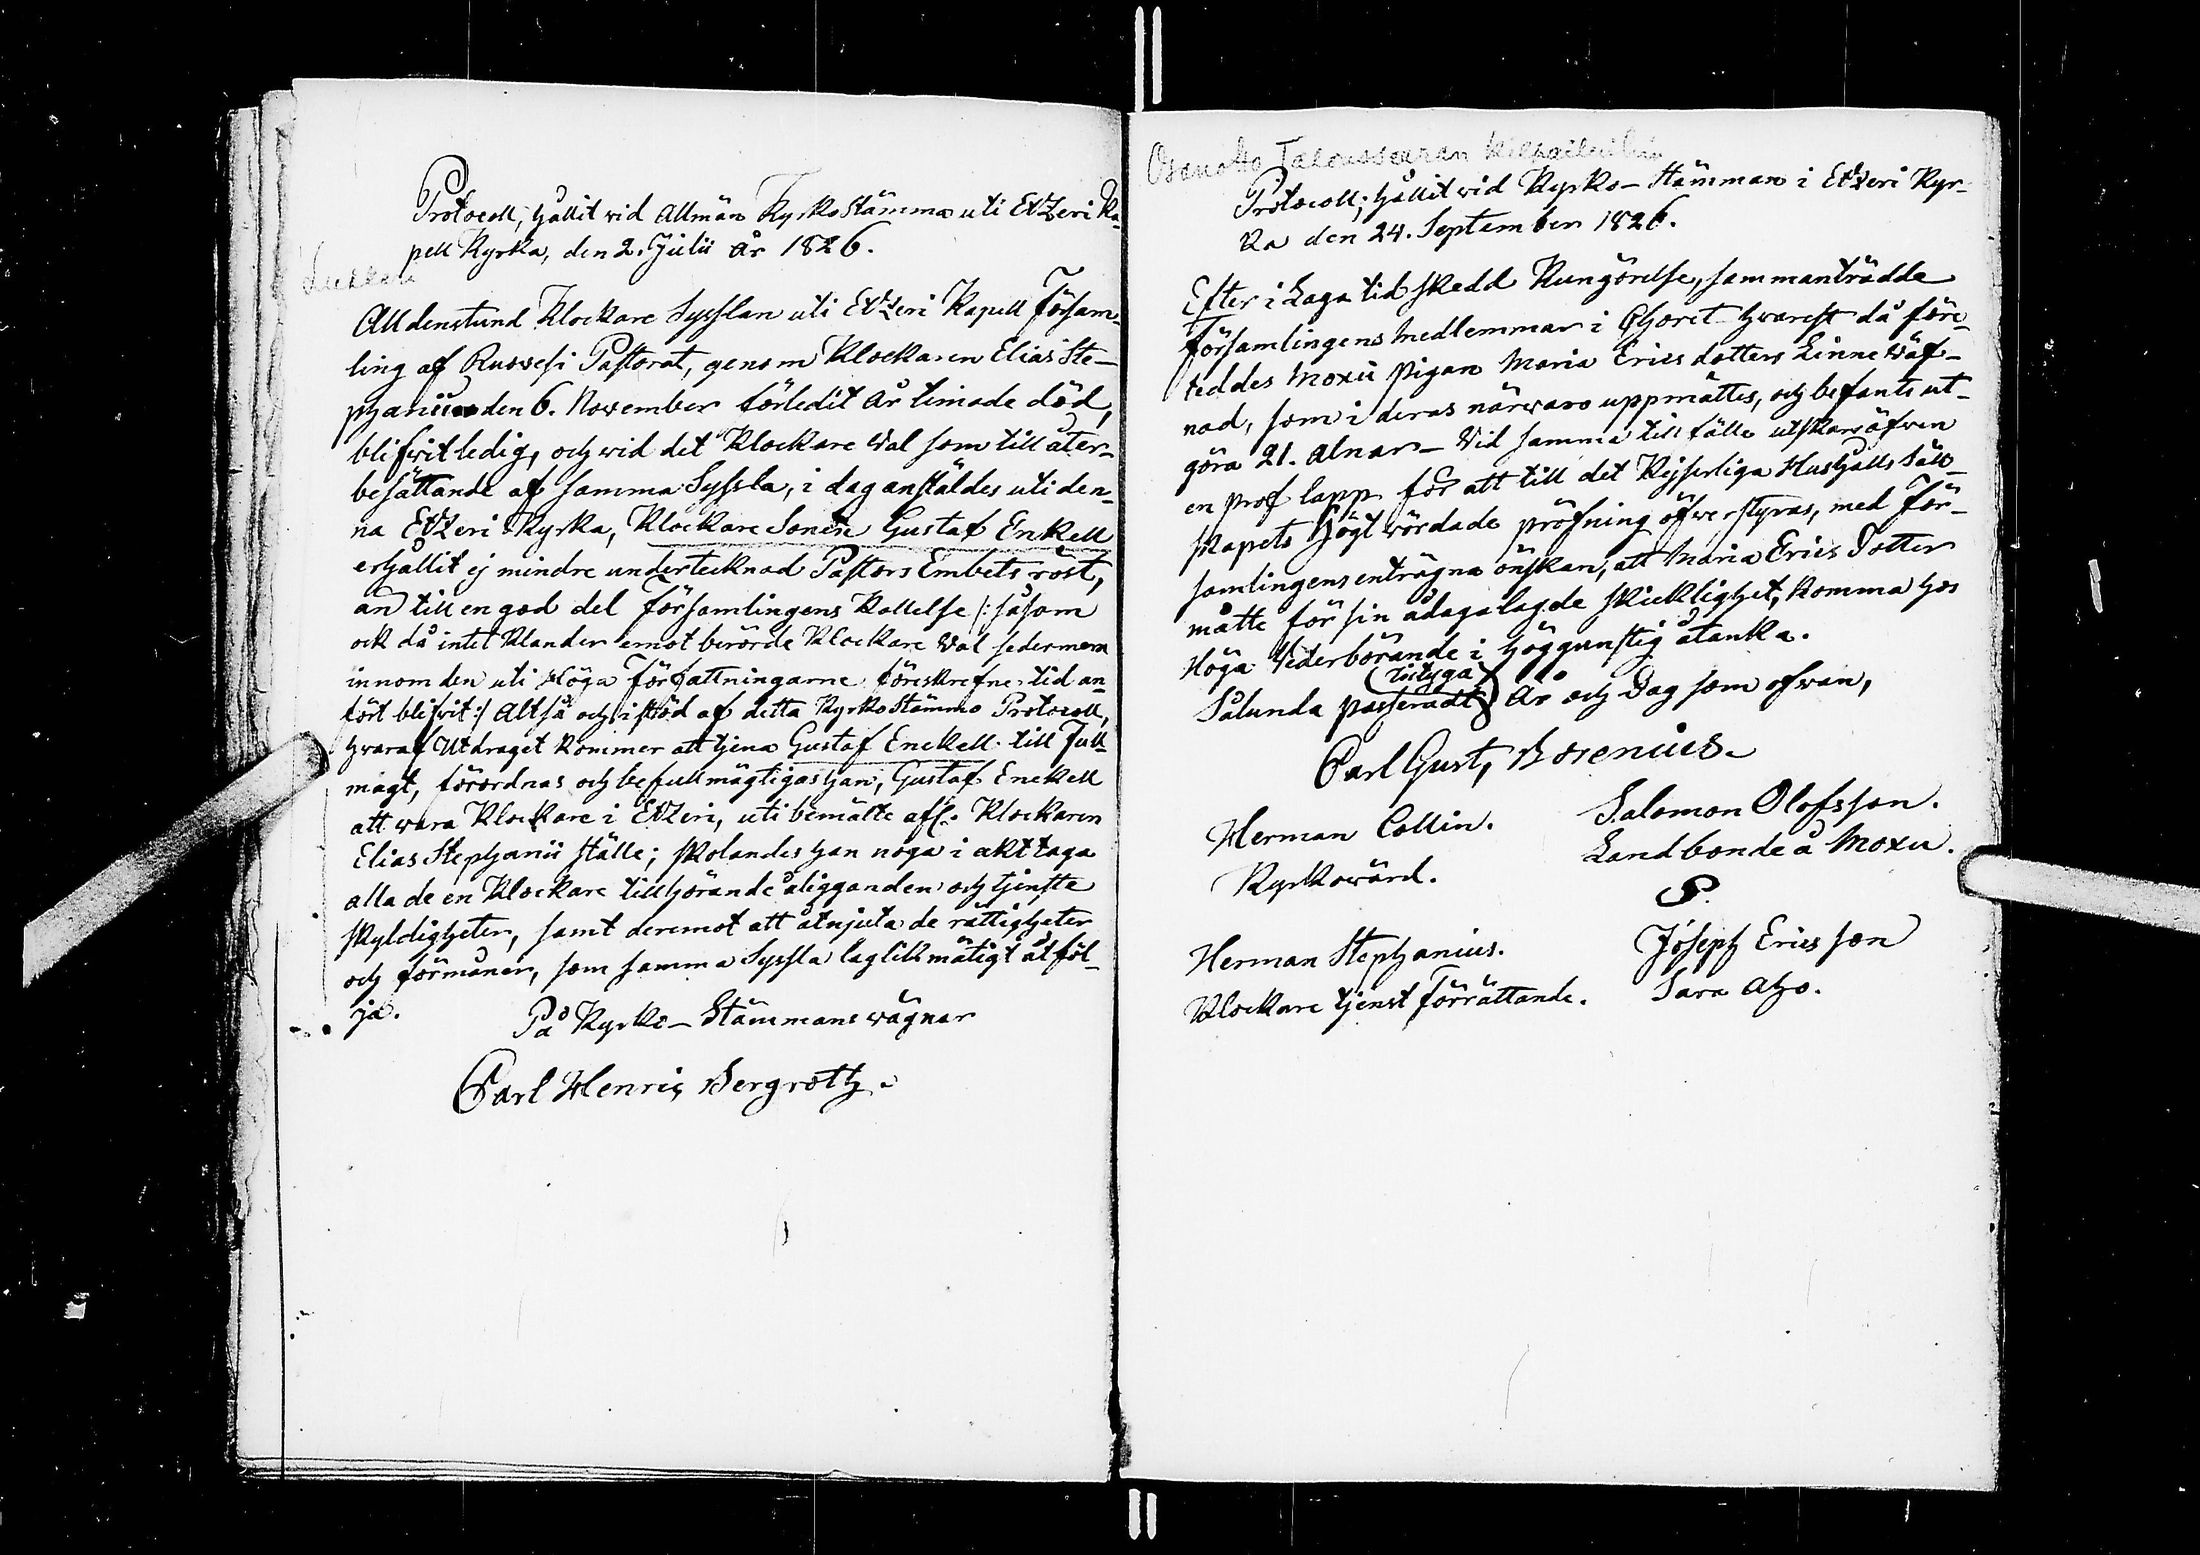 Protocoll, hållit vid Allmän Kyrko Stämma uti Etzeri Ka-
pell Kyrka, den 2. Julii År 1826.
Lukkari
All denstund Klockare Sysslan uti Etzeri Kapell Församl-
ling af Ruovesi Pastorat, genom Klockaren Elias Ste-
phanii den 6. November förledit År timade död,
blifvit ledig, och wid det Klockare Wal som till åter-
besättande af samma Syssla, i dag anstäldes uti den-
na Etzeri Kyrka, Klockare Sonen Gustaf Enkell
erhållit ej mindre undertecknad Pastors Embets röst,
än till en god del Församlingens Kallelse /: såsom
ock då intet Klander emot berörde Klockare Wal sedermera
innom den uti Höga Författningarne föreskrefne tid an-
fört blifvit :/ Altså och i stöd af detta Kyrko Stämmo Protocoll,
hvaraf Utdraget kommer att tjena Gustaf Enckell till Full-
magt, förordnas och befullmägtigas han, Gustaf Enckell
att wara Klockare i Etzeri, uti bemälte afl. Klockaren
Elias Stephanii ställe; skolandes han noga i akt taga
alla de en Klockare tillhörande åligganden och tjenste
skyldigheter, samt deremot att åtnjuta de rättigheter
och förmåner, som samma Syssla laglikmätigt åtföl-
ja.
På Kyrko-Stämmans wägnar
Carl Henric Bergroth.
Osanotto Talousseuran kilpailuihin
Protocoll; hållit vid Kyrko-Stämman i Etzeri Kyr-
ka den 24. September 1826.
Efter i Laga tid skedd Kungörelse, sammanträdde
Församlingens medlemmar i Choret hvarest då före-
teddes Moxu Pigan Maria Ericsdotters Linne Wäf-
nad, som i deras närwaro uppmättes, och befants ut-
göra 21. Alnar - Vid samma tillfälle utskars äfwen
en prof lapp för att till det Kejserliga Hushålls Säll-
skapets högt wördade pröfning öfwerstyras, med För-
samlingens enträgna önskan, att Maria Erics Dotter
måtte för sin ådagalagde skicklighet, komma hos
Höga Wederbörande i höggunstig åtanka.
(bitÿga)
Sålunda passeradt År och Dag som ofwan,
Carl Gust, Borenius.
Herman Collin.
Kyrkowärd.
Salomon Olofsson.
Landbonde å Moxu.
Herman Stephanius.
Klockare tjenst Förrättande.
Joseph Ericsson
Sara aho.